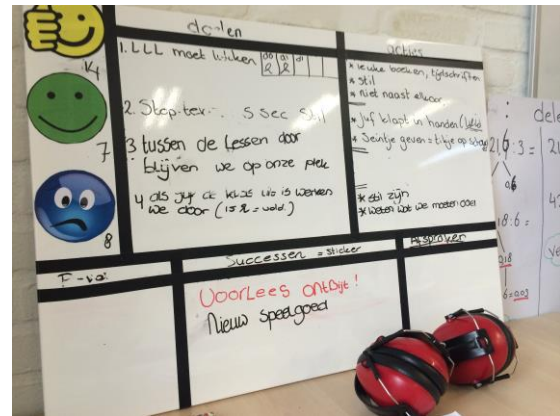 doelen
1. LLL moet lukken
2. Stop-tex 5 sec stil
3 tussen de lessen door
blijven we op onze plek
4 als juf de klas uit is werken
we door (15 = vold.)
14
7
8
acties
* leuke boeken, tijdschriften
* stil
* niet naast elkaar
* juf klapt in handen
* Seintje geven = tikje op
* stil zijn
* weten wat we moeten doen
Successen = sticker
Voorlees ontbijt!
Nieuw speelgoed
Afspraken
dele
:3=
18:6=